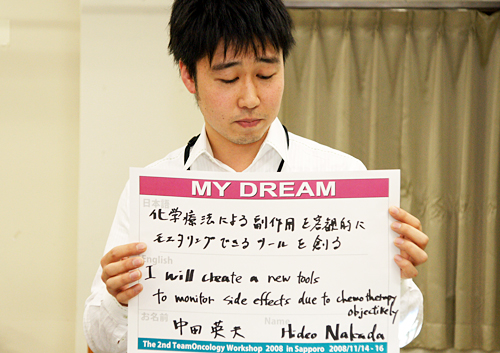 MY DREAM
日本語
化学療法による副作用を客観的に
モニタリングできるツールを創る
English
I will create a new tools
to monitor side effects due to chemotherapy
objectively
お名前
Name
中田英夫 Hideo Nakada
The 2nd TeamOncology Workshop 2008 in Sapporo 2008/11/14-16